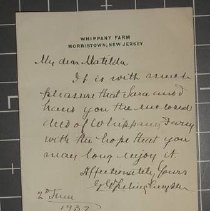 WHIPPANY FARM
MORRISTOWN, NEW JERSEY
My dear Matilda
It is with much
pleasure that Sara and I
hand you the enclosed
deed of Whippany Farm
with the hope that you
may long enjoy it
Affectionately Yours
2d June